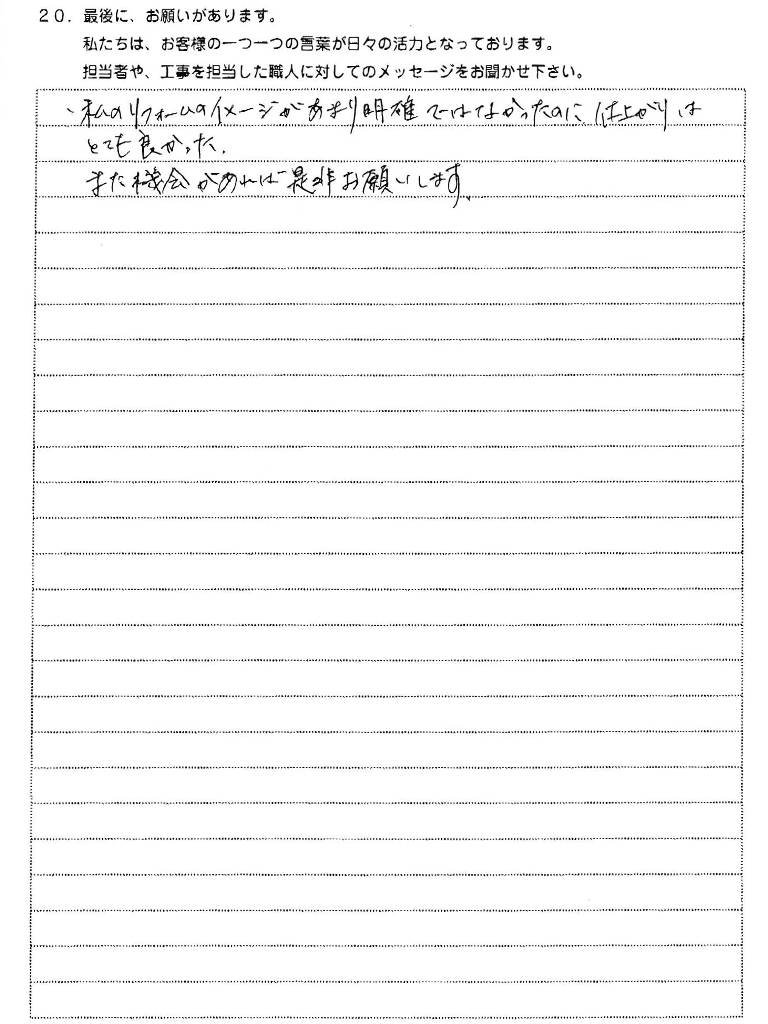 20. 最後に、お願いがあります。
私たちは、お客様の一つ一つの言葉が日々の活力となっております。
担当者や、工事を担当した職人に対してのメッセージをお聞かせ下さい。
、私のリフォームのイメージがあまり明確ではなかったのに、仕上がりは
とても良かった。
また機会があれば是非お願いします。